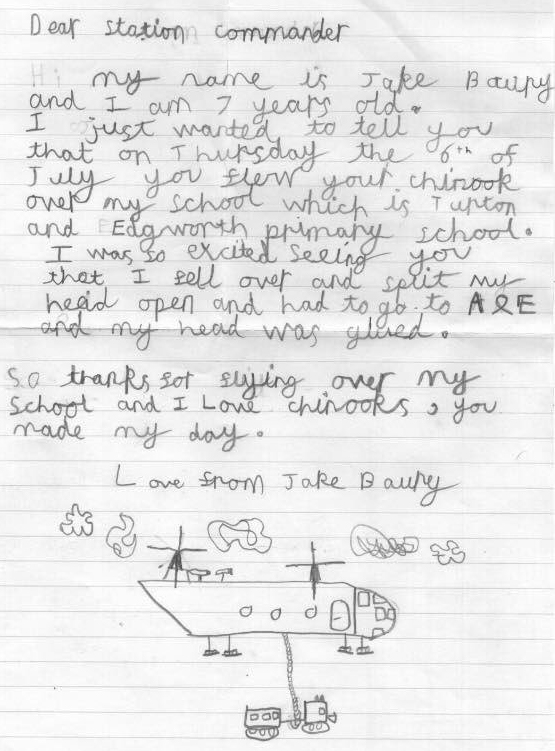 Dear station commander
Hi my name is Jake Baury
and I am 7 years old.
I just wanted to tell you
that on Thursday the 6th of
July you flew your chinook
over my school which is Turton
and Edgworth primary school.
I was so excited seeing you
that I fell over and split my
head open and had to go to A&E
and my head was glued.
So thanks for flying over my
school and I Love chinooks, you
made my day.
Love from Jake Baury